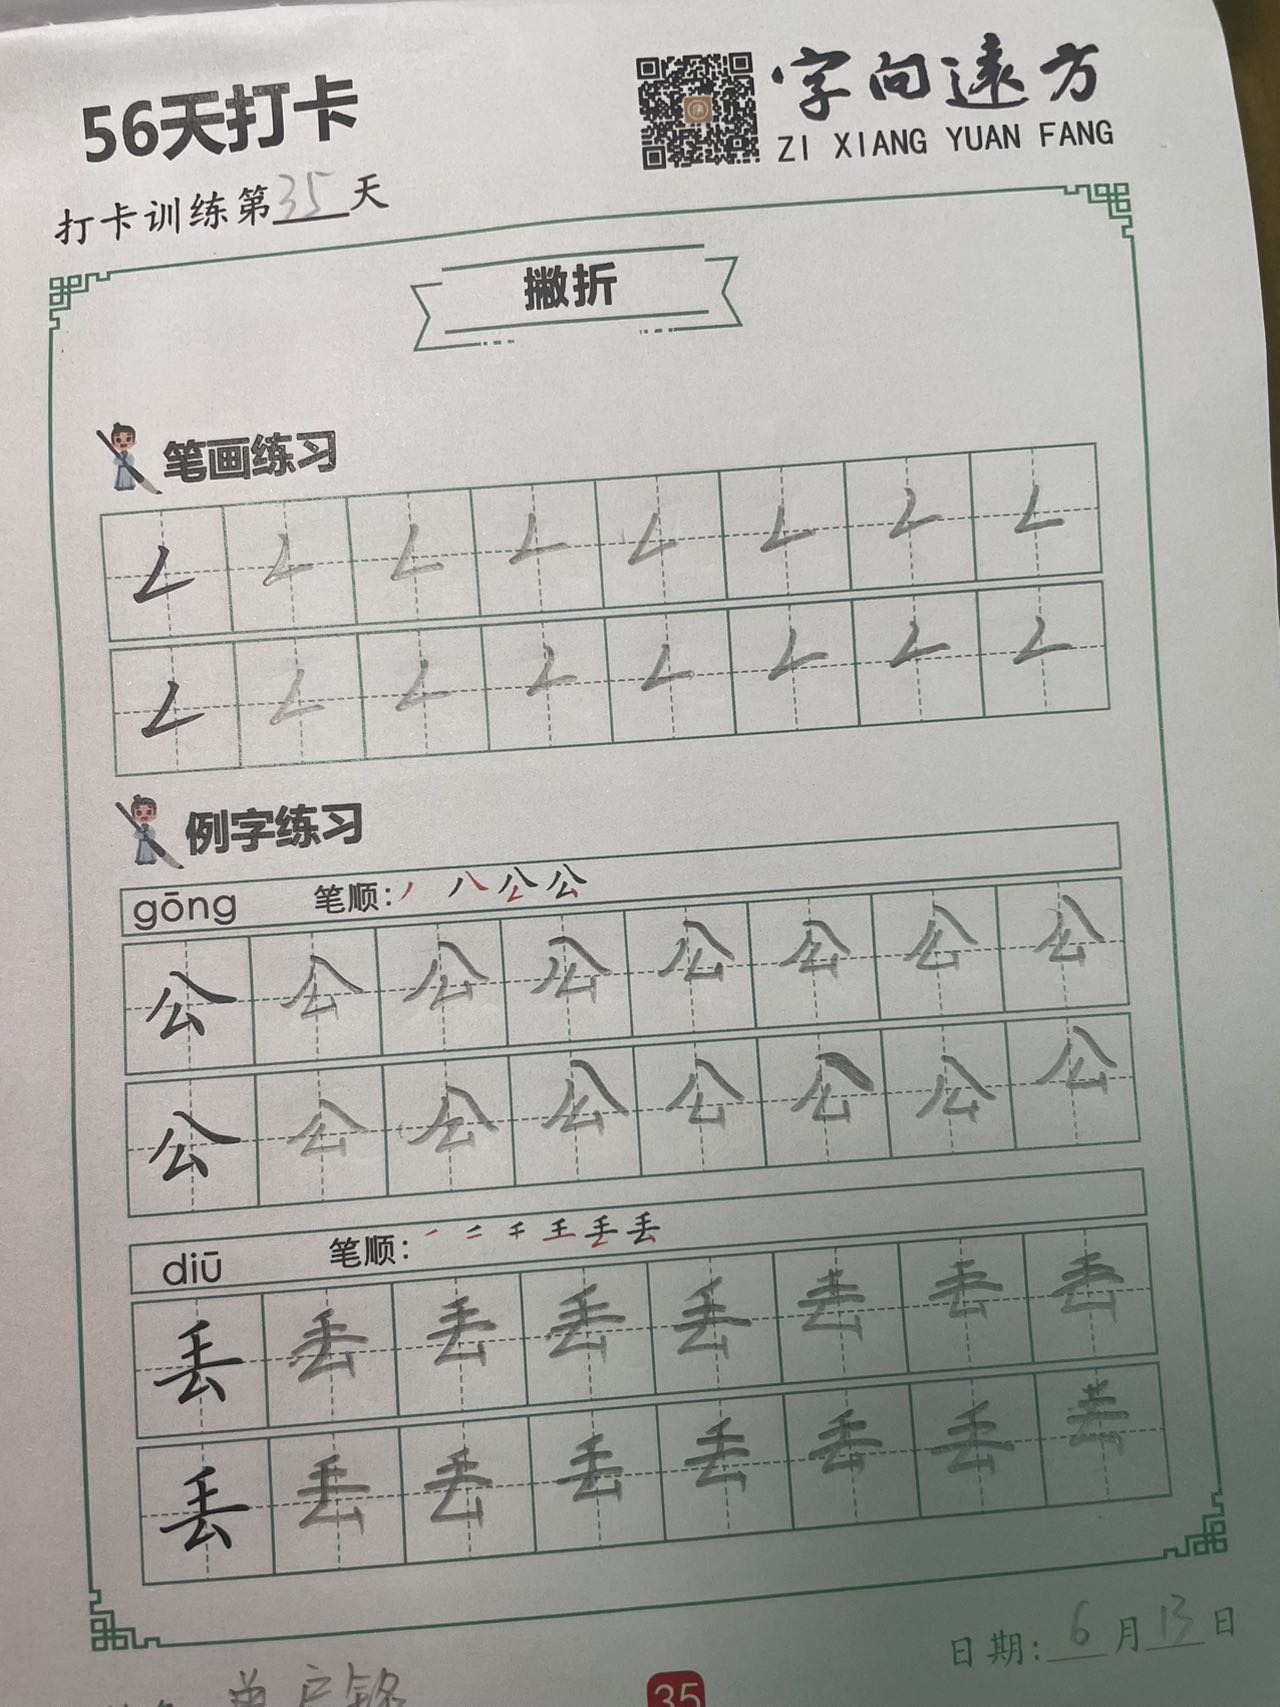 56天打卡
字向遠方
ZI XIANG YUAN FANG
打卡训练第35天
撇折
笔画练习
𠃋 𠃋 𠃋 𠃋 𠃋 𠃋 𠃋 𠃋
𠃋 𠃋 𠃋 𠃋 𠃋 𠃋 𠃋 𠃋
例字练习
gōng 笔顺:
公 公 公 公 公 公 公 公
公 公 公 公 公 公 公 公
diū 笔顺:
丢 丢 丢 丢 丢 丢 丢 丢
丢 丢 丢 丢 丢 丢 丢 丢
日期:6月13日
35